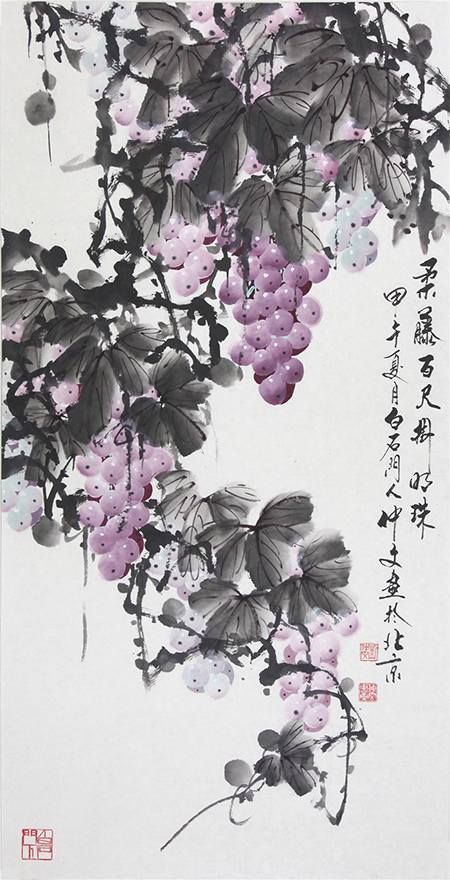 柔藤百尺掛明珠
甲午夏月白石門人仲文畫於北京